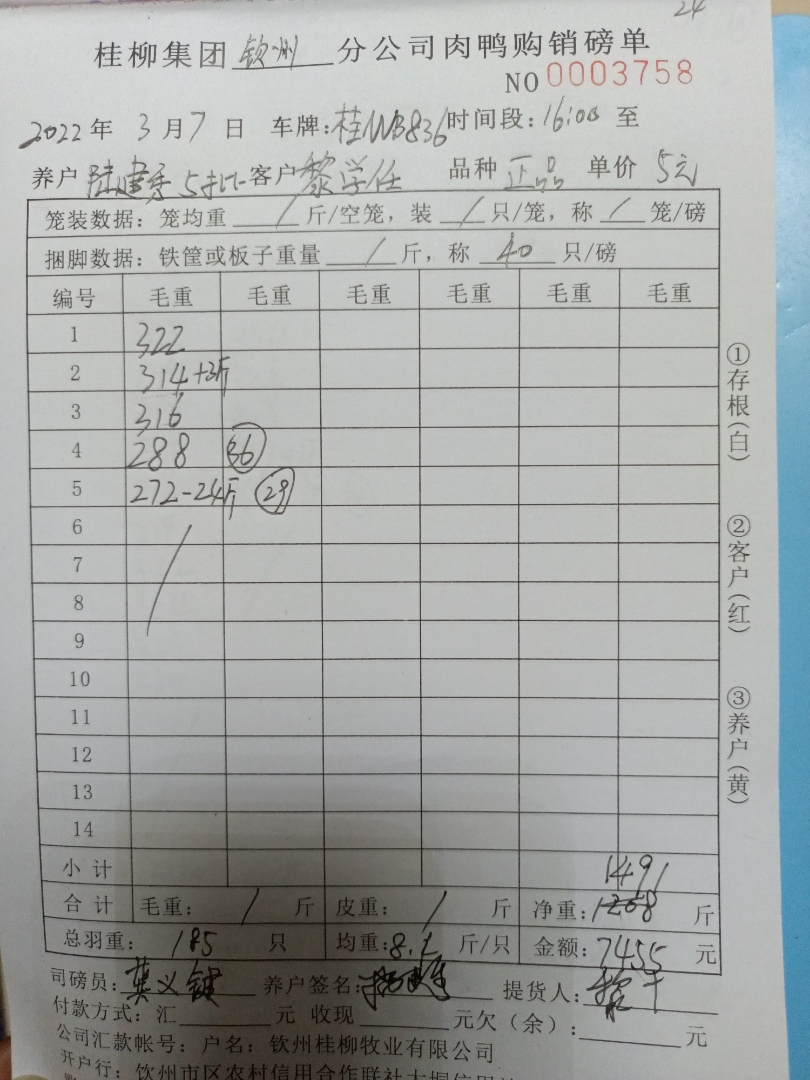 24
桂柳集团 钦州 分公司肉鸭购销磅单
NO 0003758
2022 年 3 月 7 日 车牌:桂WB836 时间段:16:00 至
养户 陆建秀 5批 客户 黎学任 品种 正品 单价 5元
笼装数据: 笼均重 / 斤/空笼, 装 / 只/笼, 称 / 笼/磅
捆脚数据: 铁筐或板子重量 / 斤, 称 40 只/磅
编号 毛重 毛重 毛重 毛重 毛重 毛重
1 322
2 314+3斤
3 316
4 288 36
5 272-24斤 29
6
7
8
9
10
11
12
13
14
小 计 1491
合 计 毛重: / 斤 皮重: / 斤 净重: 斤
总羽重: 185 只 均重:8.1 斤/只 金额:7455 元
司磅员: 养户签名: 提货人:
付款方式: 汇 元 收现 元欠(余): 元
公司汇款帐号: 户名: 钦州桂柳牧业有限公司
开户行: 钦州市区农村信用合作联社大垌信用
①存根(白)
②客户(红)
③养户(黄)